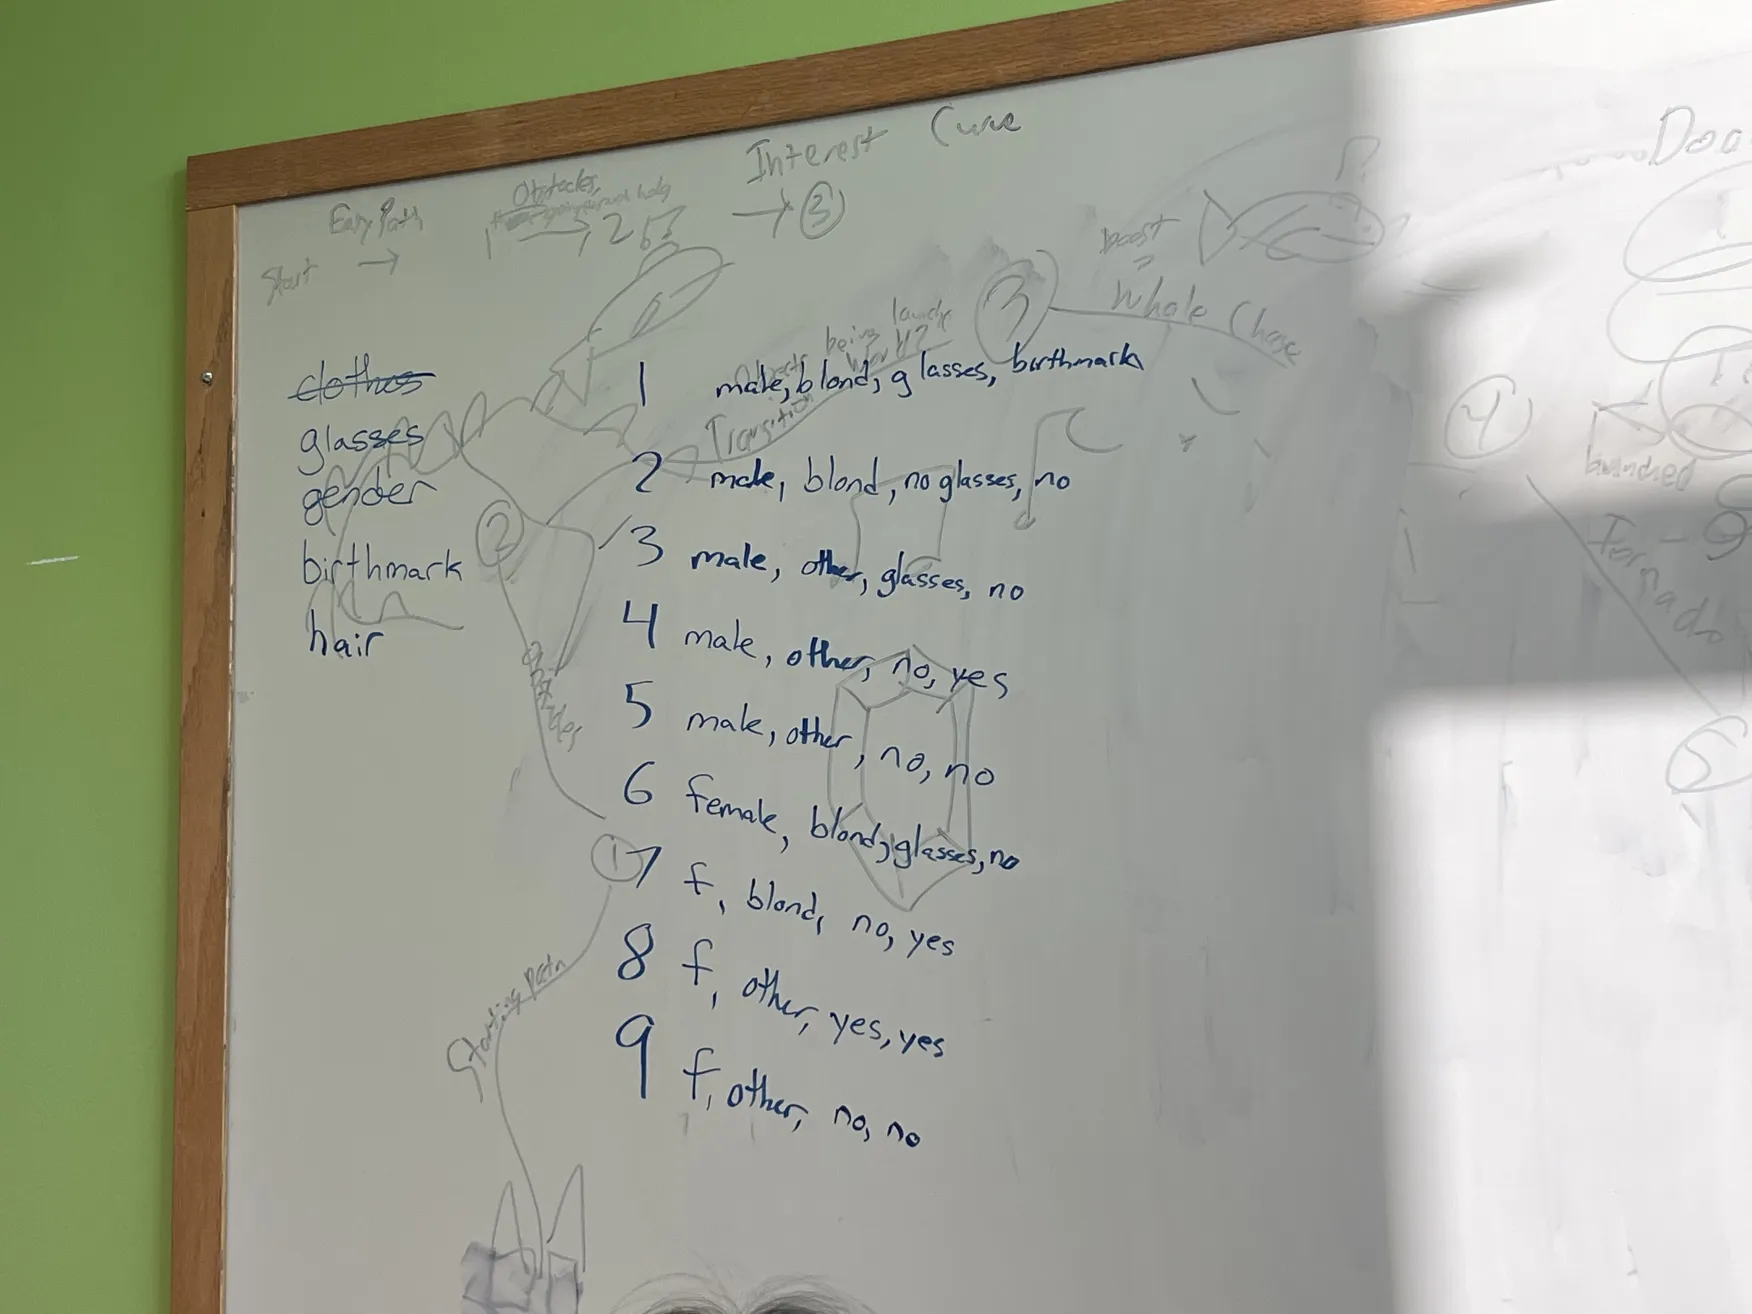 Interest Curve
Easy Path
Obstacles,
Start → 1 → 2 → ③
boost
Whale Chase
3
being launch
Transition
clothes
glasses
gender
birthmark
hair
1 male, blond, glasses, birthmark
2 male, blond, no glasses, no
3 male, other, glasses, no
4 male, other, no, yes
5 male, other, no, no
6 female, blond, glasses, no
7 f, blond, no, yes
8 f, other, yes, yes
9 f, other, no, no
2
1
Starting path
4
Tornado
5